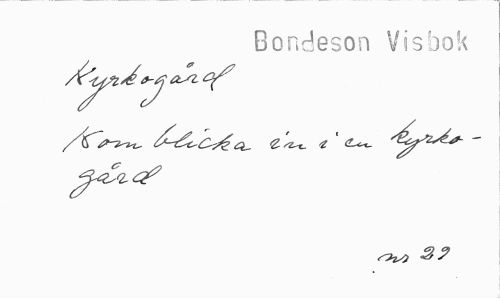 Bondeson Visbok
Kyrkogård
Kom blicka in i en kyrko-
gård
nr 29